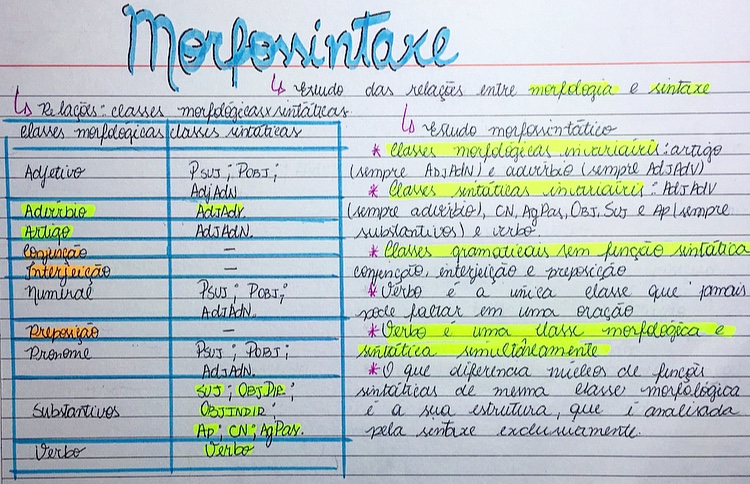 Morfossintaxe
↳ estudo das relações entre morfologia e sintaxe
↳ Relações: classes morfológicas x sintáticas
classes morfológicas classes sintáticas
Adjetivo PSUJ; POBJ;
AdjAdN
Advérbio AdJAdV.
Artigo AdJAdN.
Conjunção –
Interjeição –
Numeral PSUJ; POBJ;
AdJAdN.
Preposição –
Pronome PSUJ; POBJ;
AdJAdN.
Substantivos SUJ; OBJDIR;
OBJINDIR;
Ap; CN; AgPas.
Verbo Verbo
↳ estudo morfossintático
* Classes morfológicas invariáveis: artigo
(sempre AdJAdN) e advérbio (sempre AdJAdV)
* Classes sintáticas invariáveis: AdJAdV
(sempre advérbio), CN, AgPas, OBJ, SUJ e Ap (sempre
substantivos) e verbo.
* Classes gramaticais sem função sintática
conjunção, interjeição e preposição
* Verbo é a única classe que jamais
pode faltar em uma oração
* Verbo é uma classe morfológica e
sintática simultâneamente
* O que diferencia núcleos de funções
sintáticas de mesma classe morfológica
é a sua estrutura, que é analisada
pela sintaxe exclusivamente.